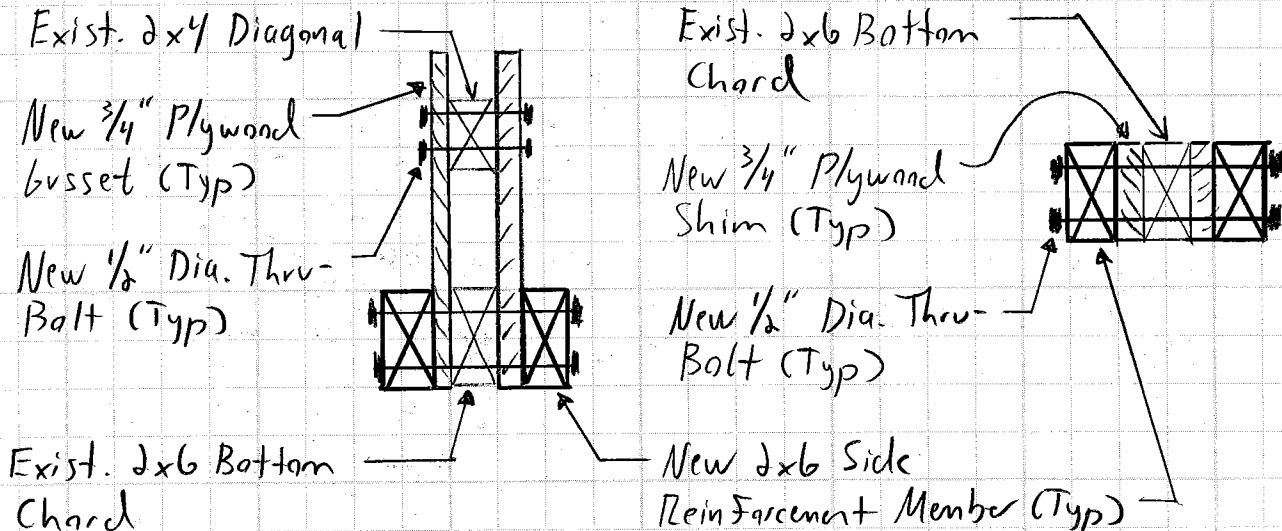 Exist. 2x4 Diagonal
New 3/4" Plywood
Gusset (Typ)
New 1/2" Dia. Thru-
Bolt (Typ)
Exist. 2x6 Bottom
Chord
Exist. 2x6 Bottom
Chord
New 3/4" Plywood
Shim (Typ)
New 1/2" Dia. Thru-
Bolt (Typ)
New 2x6 Side
Reinforcement Member (Typ)